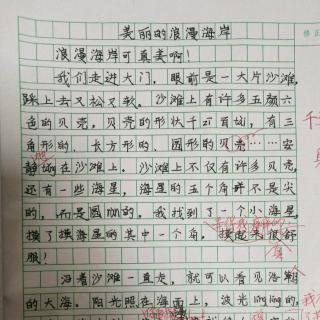 美丽的浪漫海岸
浪漫海岸可真美啊!
我们走进大门,眼前是一大片沙滩,
踩上去又松又软。沙滩上有许多五颜六
色的贝壳,贝壳的形状千zī百tài,有三
角形的、长方形的、圆形的贝壳……安
静地在沙滩上。沙滩不仅有许多贝壳,
还有一些海星,海星的五个角并不是尖
的,而是圆圆的。我找到了一个小海星,
摸了摸海星的其中一个角,摸起来很舒
服!
沿着沙滩一直走,就可以看见浩瀚
的大海。阳光照在海面上,波光línglíng的,